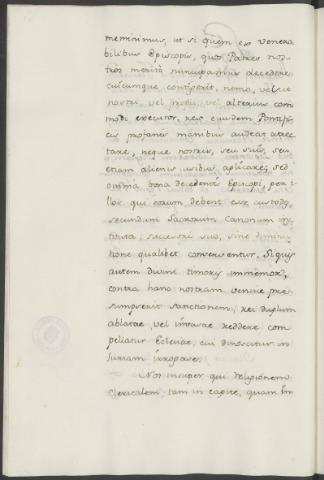 meminimus, ut si quem ex venera
bilibus Episcopis, quos Patres nos
tros merito nuncupamus decedere
cuicumque contigerit, nemo, vel sic
nostri, vel modi, vel alterius com
modi executor, res eiusdem Pontifi
cis profanis manibus audeat attrec
tare, neque nostris, seu suis, seu
etiam alienis usibus aplicare, sed
omnia bona decedentis Episcopi per i
llos qui eorum debent esse custodes
secundum Sacrorum Canonum ins
tituta succesori suo, sine diminu
tione qualibet conserventur. Siquis
autem divini timoris immemor,
contra hanc nostram venire pre
sumpserit sanctionem, rei duplum
ablatae, vel invasae reddere com
pellatur Eclesiae, cui dinoscitur in
iuriam irrogasse.
Nos insuper qui religionem
clericalem, tam in capite, quam in